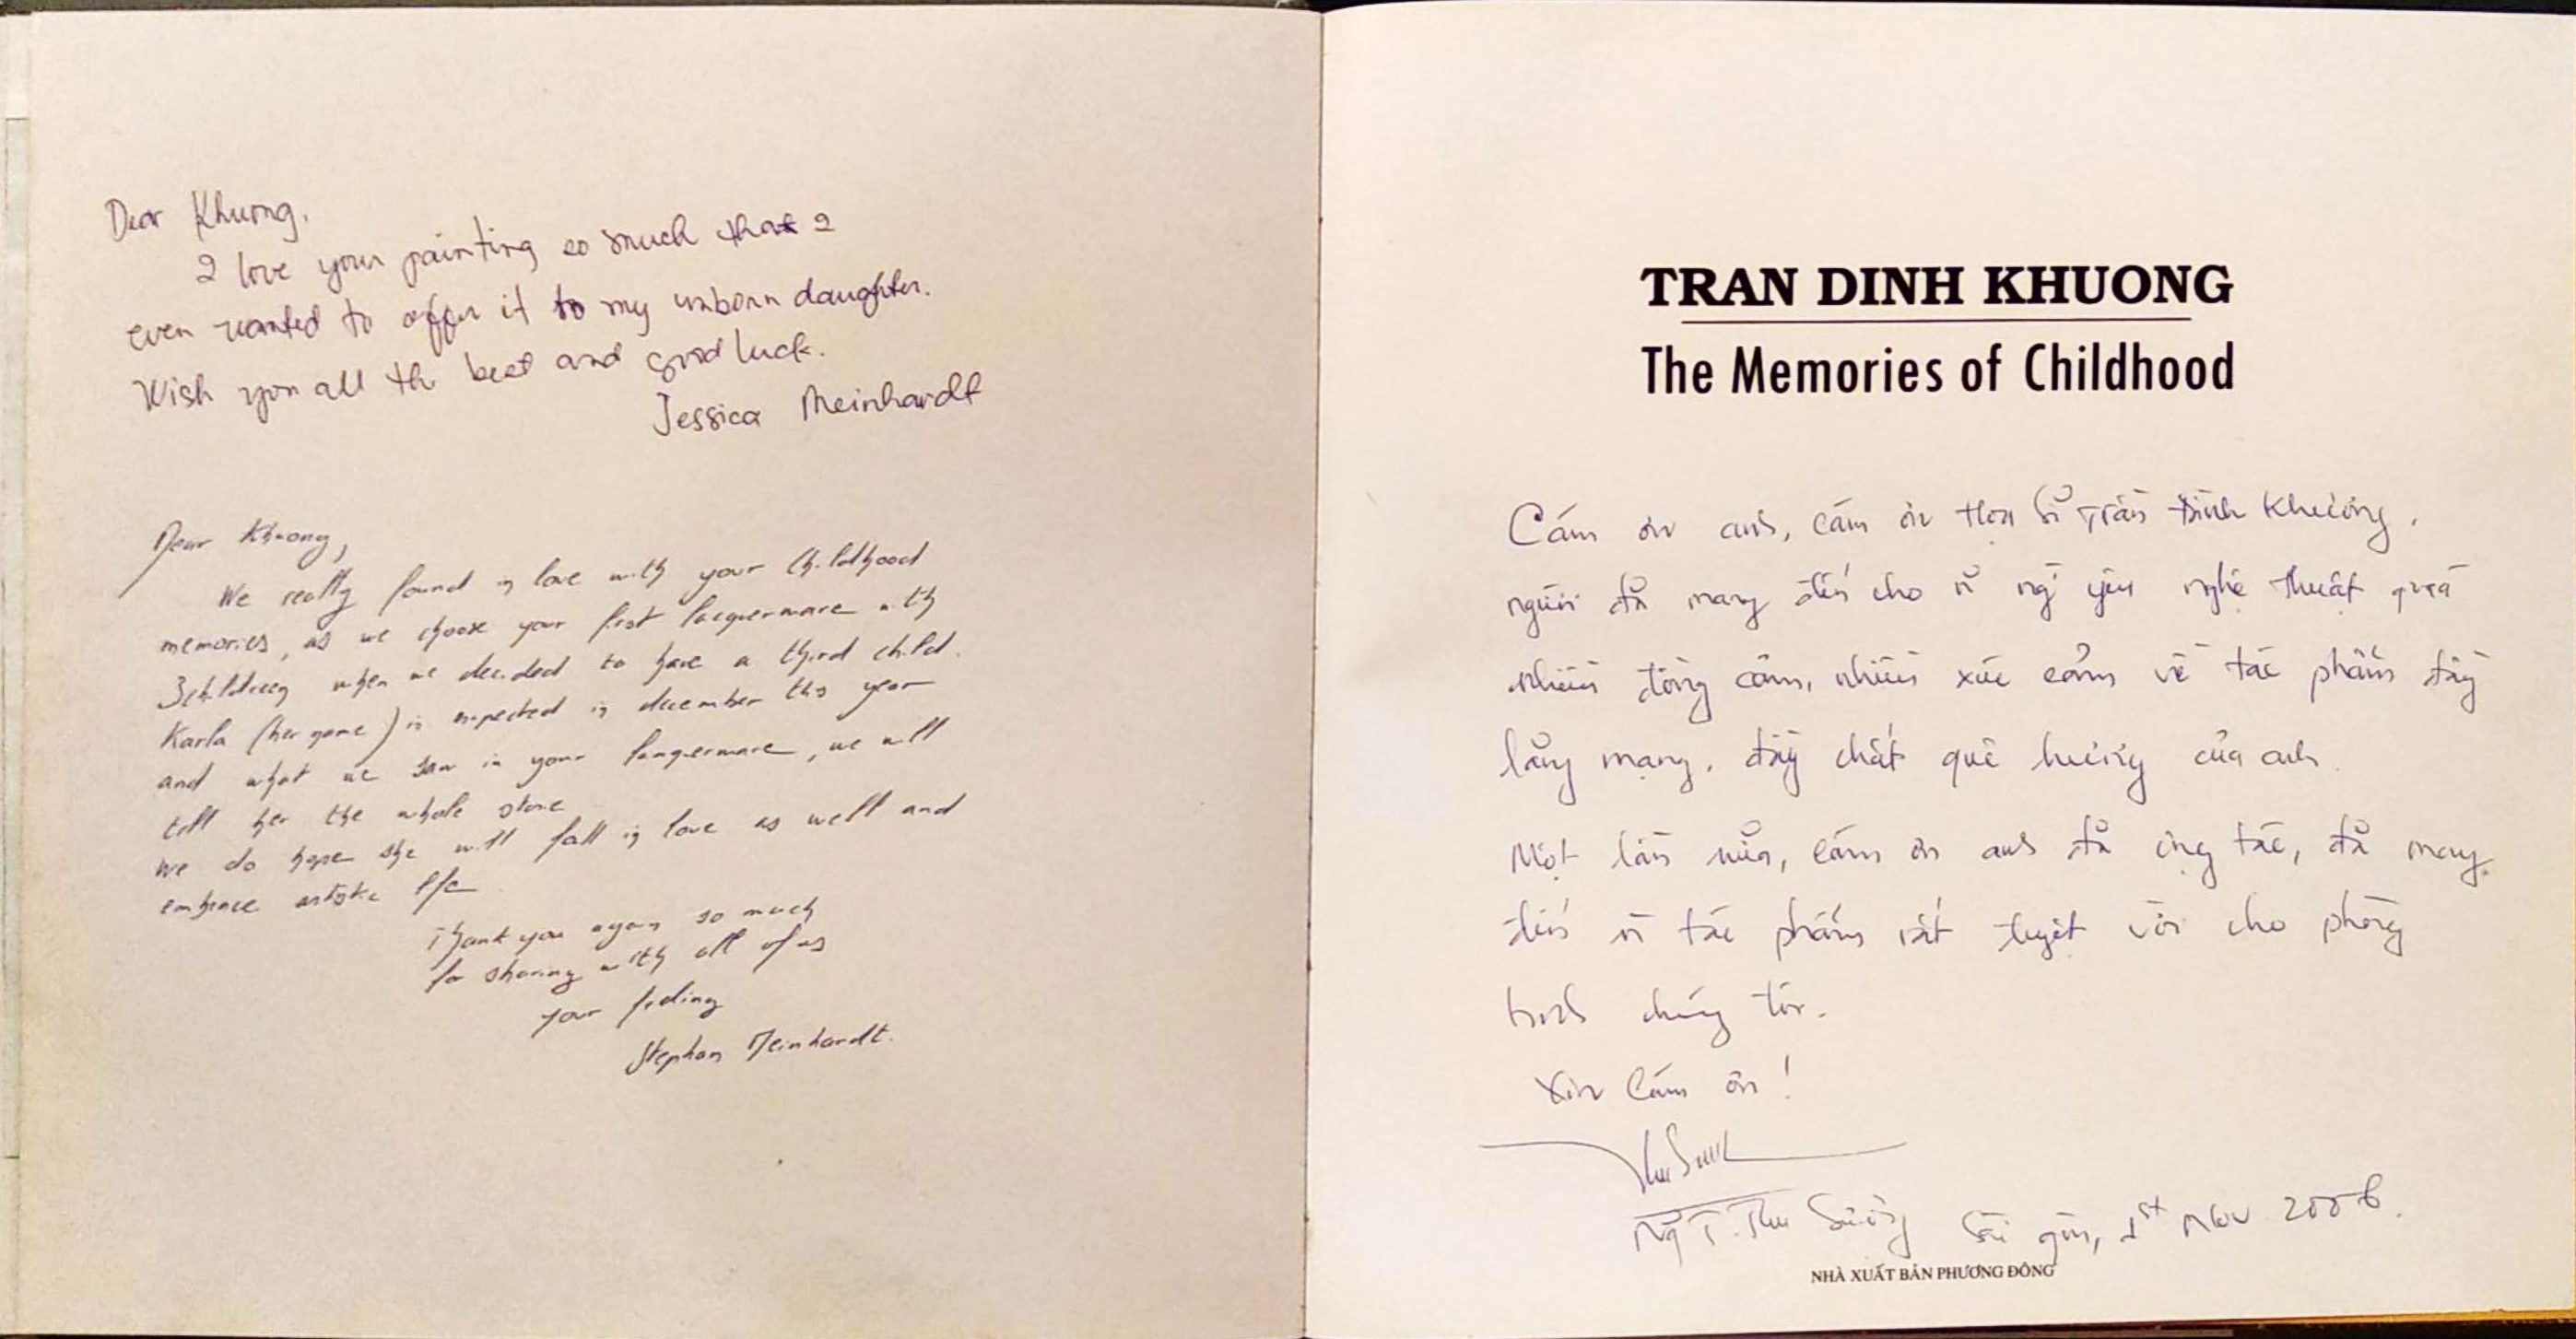 Dear Khương.
I love your painting so much that I
even wanted to offer it to my unborn daughter.
Wish you all the best and good luck.
Jessica Meinhardt
Dear Khuong,
We really found in love with your Childhood
memories, as we choose your first laquerware with
3 children when we decided to have a third child.
Karla (her name) is expected in december this year
and what we saw in your laquerware, we will
tell her the whole store
we do hope she will fall in love as well and
embrace artistic life
Thank you again so much
for sharing with all of us
your feeling
Stephan Meinhardt.
TRAN DINH KHUONG
The Memories of Childhood
Cám ơn anh, cám ơn họa sĩ Trần Đình Khương,
người đã mang đến cho ~ ng` yêu nghệ thuật quá
nhiều đồng cảm, nhiều xúc cảm về tác phẩm đầy
lãng mạng, đầy chất quê hương của anh.
Một lần nữa, cám ơn anh đã cộng tác, đã mang
đến ~ tác phẩm rất tuyệt vời cho phòng
tranh chúng tôi.
Xin Cám ơn!
Ng T. Thu Sương Sài gòn, 1st Nov 2006.
NHÀ XUẤT BẢN PHƯƠNG ĐÔNG